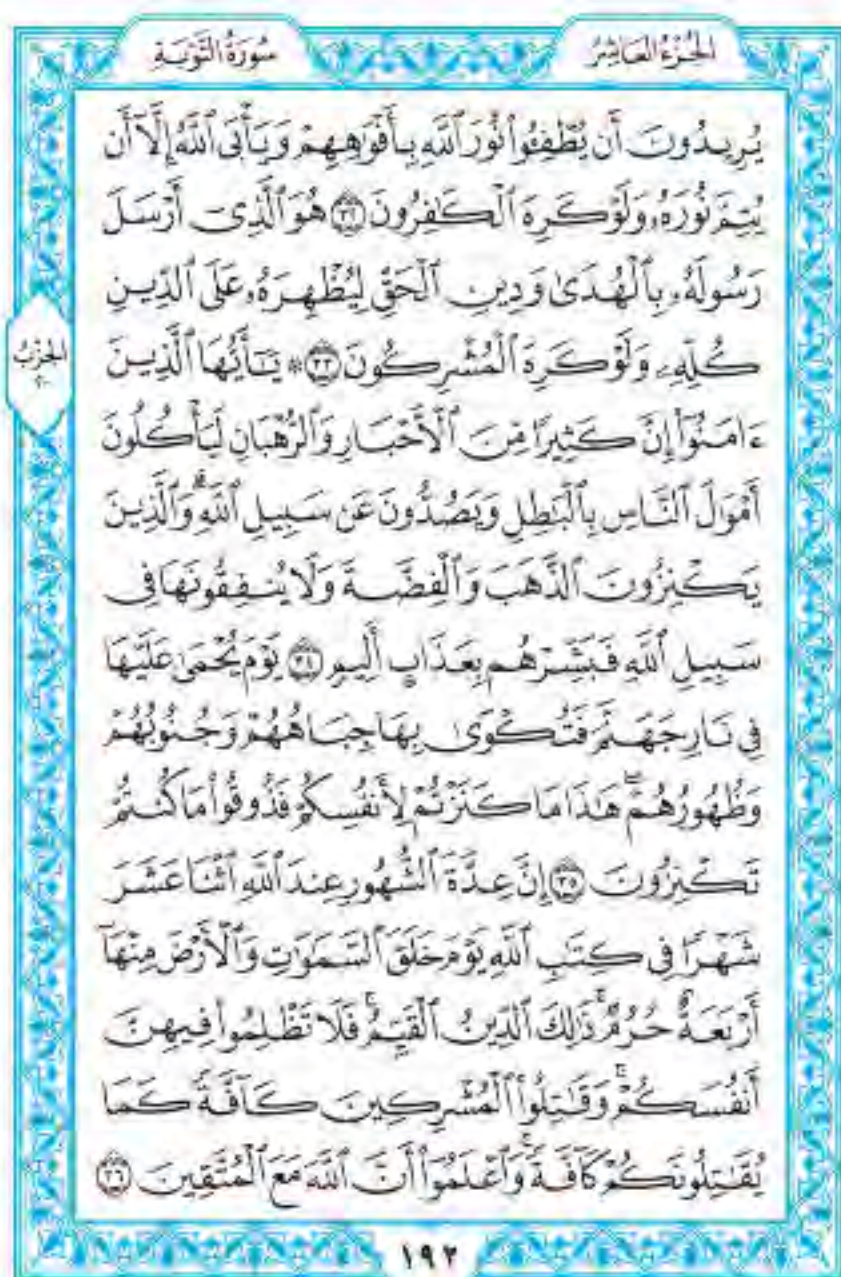 الجزء العاشر
سورة التوبة
يُرِيدُونَ أَن يُطْفِـُٔوا۟ نُورَ ٱللَّهِ بِأَفْوَٰهِهِمْ وَيَأْبَى ٱللَّهُ إِلَّآ أَن
يُتِمَّ نُورَهُۥ وَلَوْ كَرِهَ ٱلْكَٰفِرُونَ ۝٣٢ هُوَ ٱلَّذِىٓ أَرْسَلَ
رَسُولَهُۥ بِٱلْهُدَىٰ وَدِينِ ٱلْحَقِّ لِيُظْهِرَهُۥ عَلَى ٱلدِّينِ
كُلِّهِۦ وَلَوْ كَرِهَ ٱلْمُشْرِكُونَ ۝٣٣ ۞ يَٰٓأَيُّهَا ٱلَّذِينَ
ءَامَنُوٓا۟ إِنَّ كَثِيرًا مِّنَ ٱلْأَحْبَارِ وَٱلرُّهْبَانِ لَيَأْكُلُونَ
أَمْوَٰلَ ٱلنَّاسِ بِٱلْبَٰطِلِ وَيَصُدُّونَ عَن سَبِيلِ ٱللَّهِ ۗ وَٱلَّذِينَ
يَكْنِزُونَ ٱلذَّهَبَ وَٱلْفِضَّةَ وَلَا يُنفِقُونَهَا فِى
سَبِيلِ ٱللَّهِ فَبَشِّرْهُم بِعَذَابٍ أَلِيمٍ ۝٣٤ يَوْمَ يُحْمَىٰ عَلَيْهَا
فِى نَارِ جَهَنَّمَ فَتُكْوَىٰ بِهَا جِبَاهُهُمْ وَجُنُوبُهُمْ
وَظُهُورُهُمْ ۖ هَٰذَا مَا كَنَزْتُمْ لِأَنفُسِكُمْ فَذُوقُوا۟ مَا كُنتُمْ
تَكْنِزُونَ ۝٣٥ إِنَّ عِدَّةَ ٱلشُّهُورِ عِندَ ٱللَّهِ ٱثْنَا عَشَرَ
شَهْرًا فِى كِتَٰبِ ٱللَّهِ يَوْمَ خَلَقَ ٱلسَّمَٰوَٰتِ وَٱلْأَرْضَ مِنْهَآ
أَرْبَعَةٌ حُرُمٌ ۚ ذَٰلِكَ ٱلدِّينُ ٱلْقَيِّمُ ۚ فَلَا تَظْلِمُوا۟ فِيهِنَّ
أَنفُسَكُمْ ۚ وَقَٰتِلُوا۟ ٱلْمُشْرِكِينَ كَآفَّةً كَمَا
يُقَٰتِلُونَكُمْ كَآفَّةً ۚ وَٱعْلَمُوٓا۟ أَنَّ ٱللَّهَ مَعَ ٱلْمُتَّقِينَ ۝٣٦
الحزب
٢٠
١٩٢